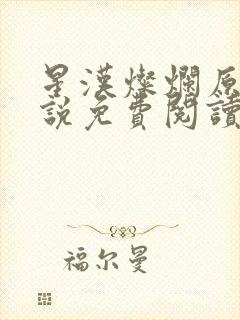 星漢燦爛原
說免費閱讀
福尔曼